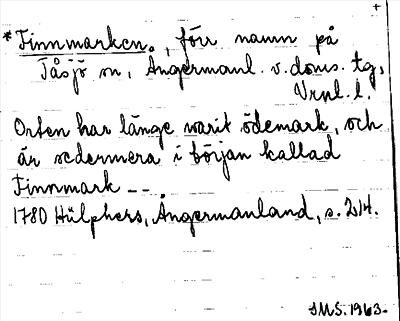 +
*Finnmarken., förr namn på
Tåsjö sn, Ångermanl. v. doms. tg,
Vrnl. l.
Orten har länge warit ödemark, och
är sedermera i början kallad
Finnmark --
1780 Hülphers, Ångermanland, s. 214.
SMS. 1963.